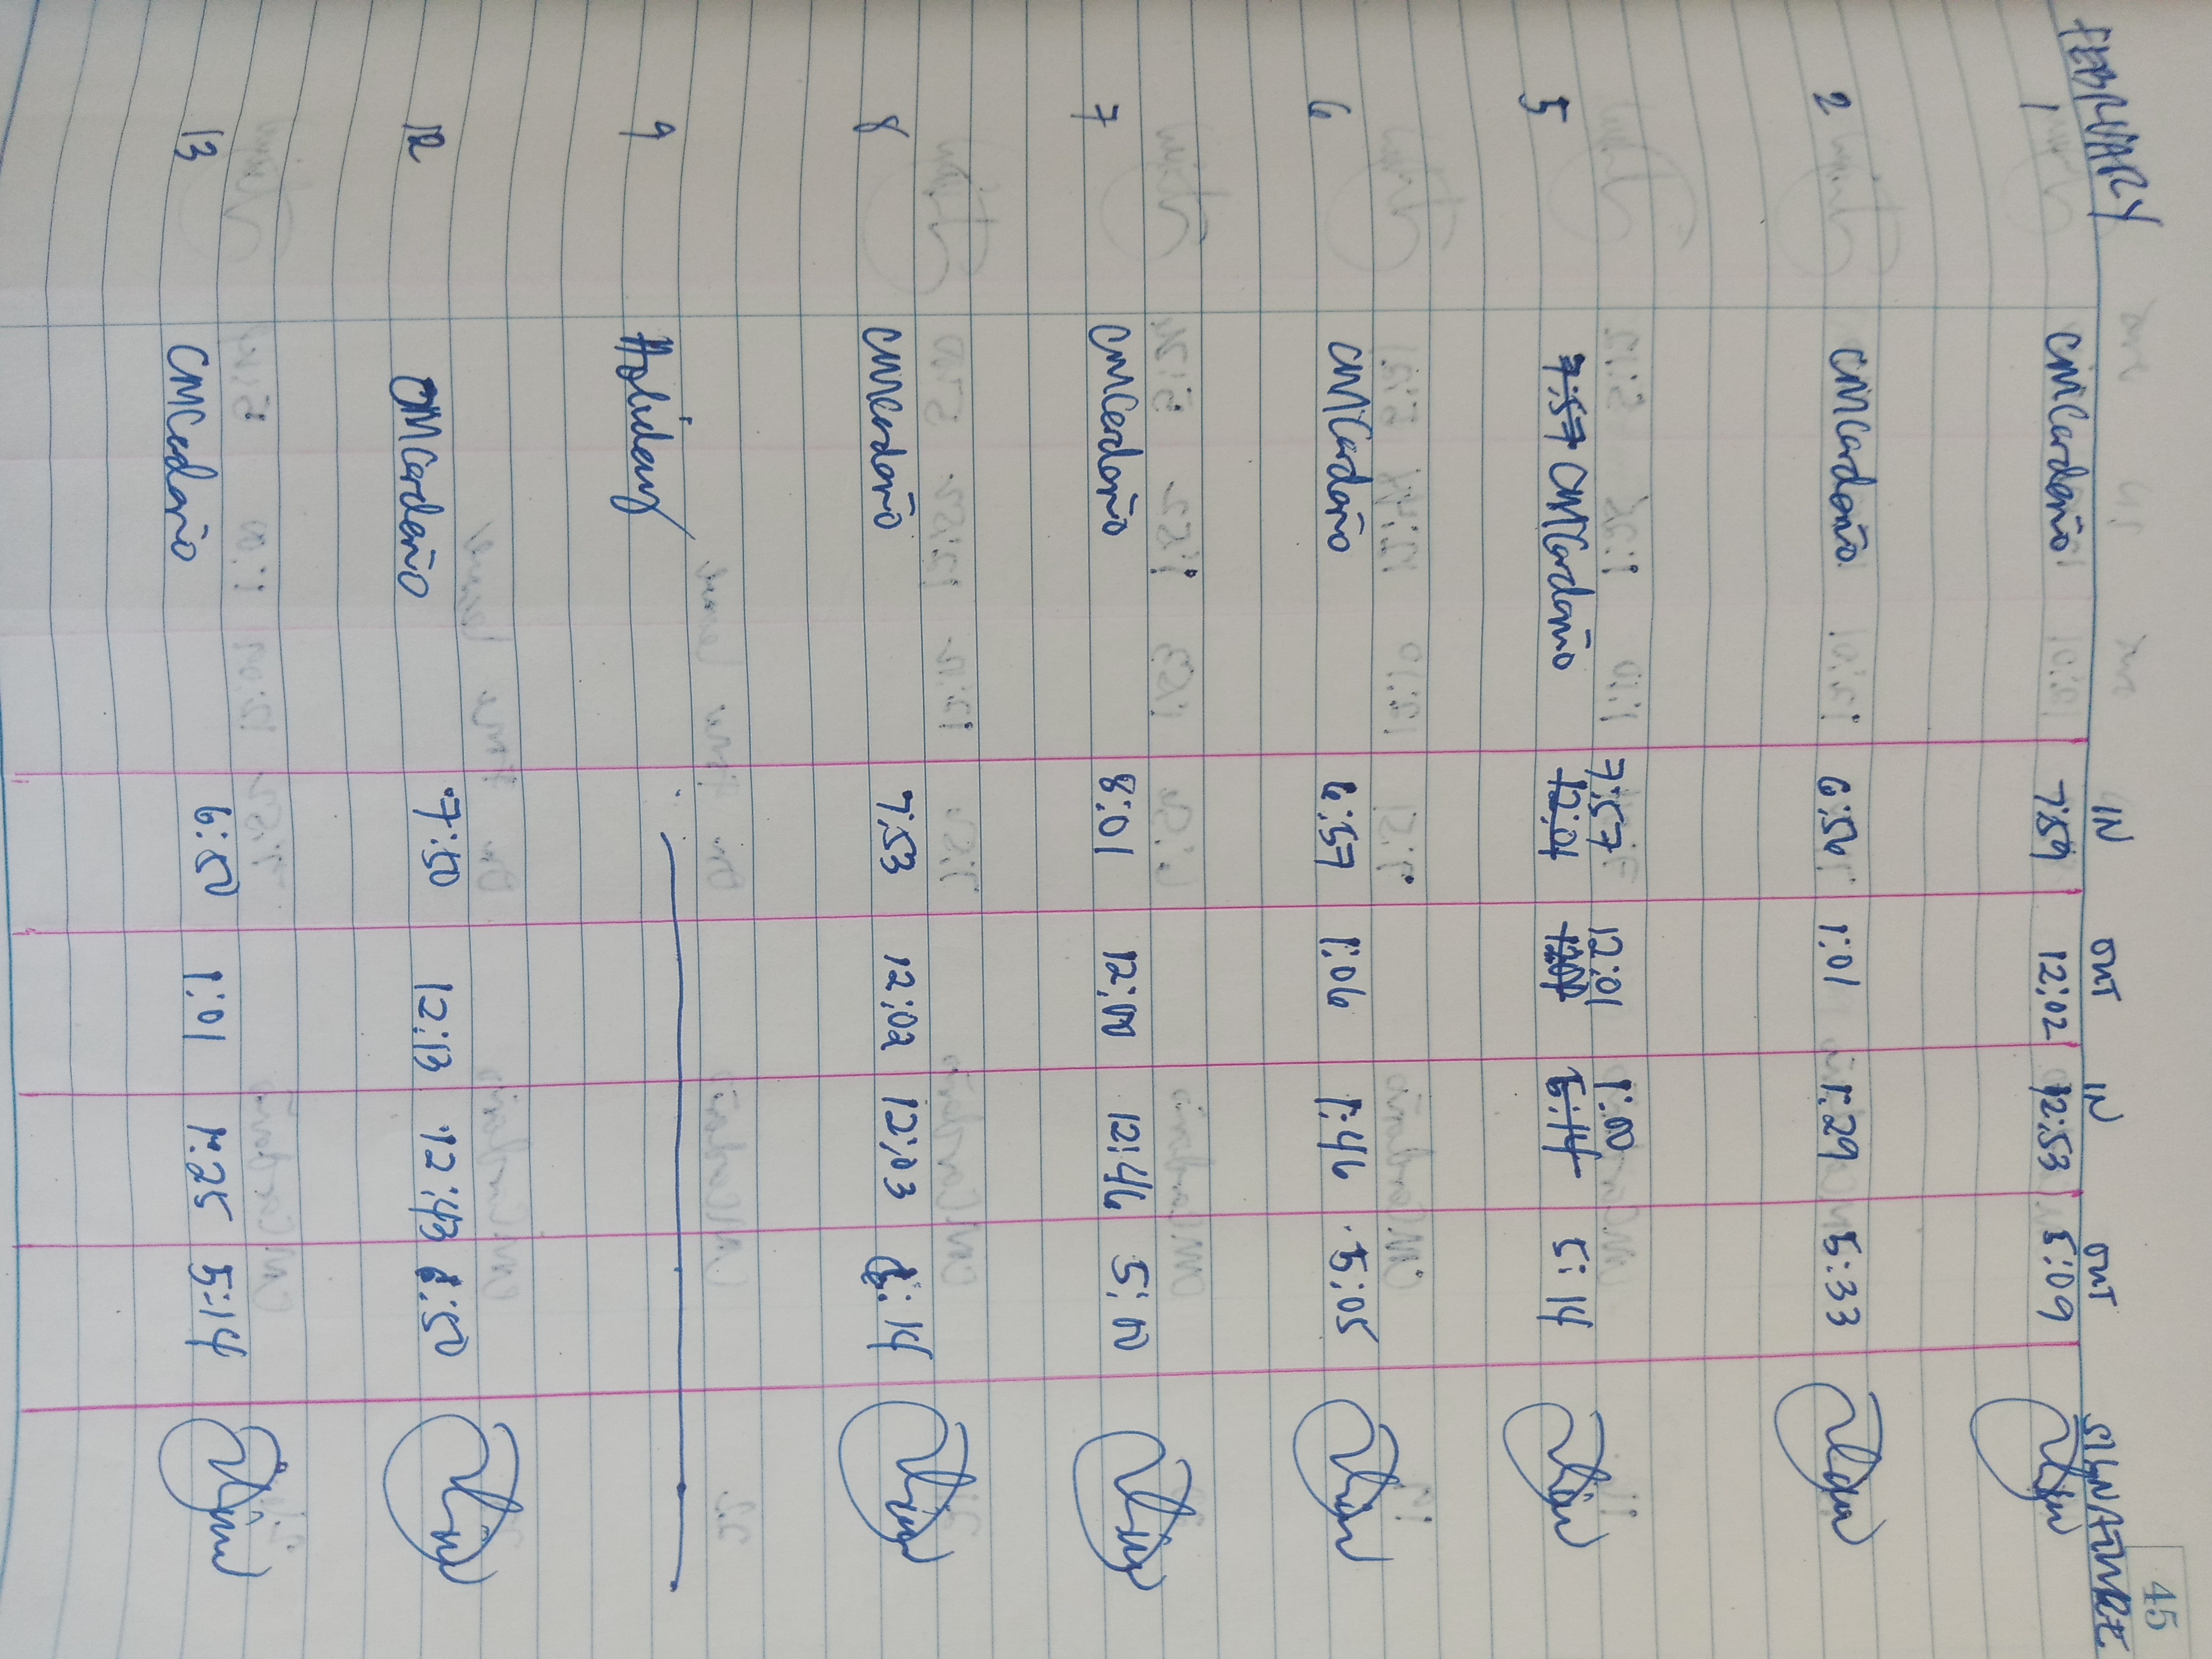 45
FEBRUARY IN OUT IN OUT SIGNATURE
1 CMCardaño 7:59 12:02 12:53 5:09
2 CMCardaño 6:56 1:01 1:29 5:33
7:57 12:01 1:00
5 7:57 CMCardaño 12:01 5:14 5:14
6 CMCardaño 6:57 1:06 1:46 5:05
7 CMCerdaño 8:01 12:00 12:46 5:10
8 CMCerdaño 7:53 12:02 12:03 6:14
9 Holiday
12 CMCardaño 7:50 12:13 12:43 6:50
13 CMCedaño 6:50 1:01 1:25 5:14